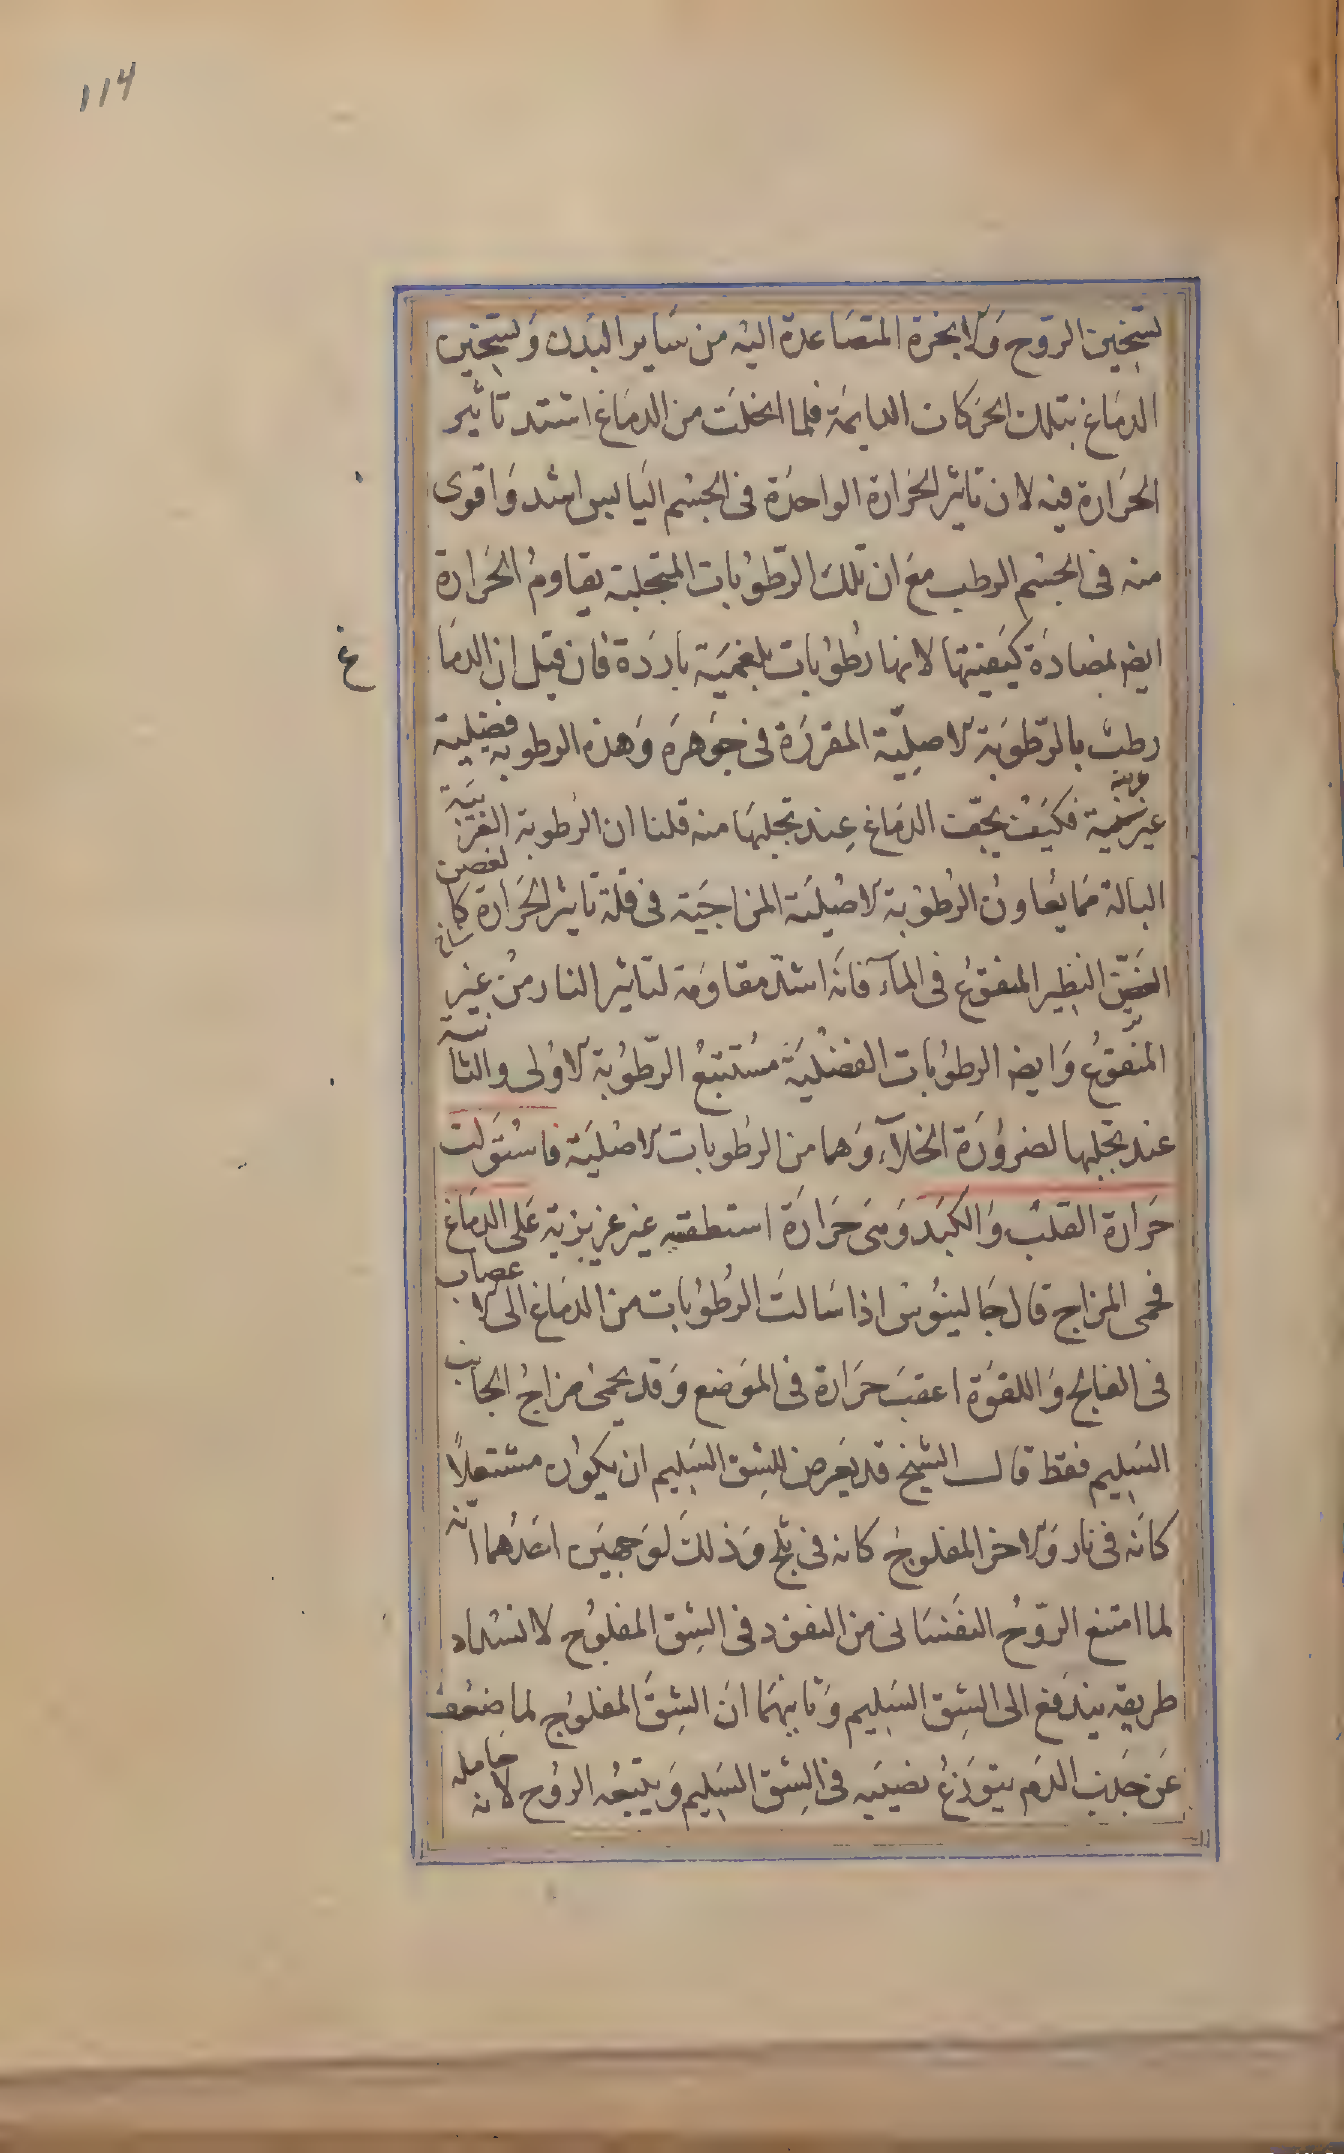 114
لتسخين الروح والابخرة المتصاعدة اليه من ساير البدن وتسخين
الدماغ بتلك الحركات الدايمة فلما انحلت من الدماغ اشتد تاثير
الحرارة فيه لان تاثير الحرارة الواحدة فى الجسم اليابس اشد واقوى
منه فى الجسم الرطب مع ان تلك الرطوبات المتحلبة يقاوم الحرارة
ايضا بمضادة كيفيتها لانها رطوبات بلغمية باردة فان قيل ان الدما
غ
رطب بالرطوبة الاصلية المقررة فى جوهره وهذه الرطوبة فضلية
غير فكيف يجف الدماغ عند تحلبها منه قلنا ان الرطوبة الغريبة
البالة مما يعاون الرطوبة الاصلية المزاجية فى قلة تاثير الحرارة كالغصن
النظير المنقوع فى الماء فانه اشد مقاومة لتاثير النار من غير
المنقوع وايضا الرطوبات الفضلية مستتبع الرطوبة الاولى والثانية
عند تحلبها لضرورة الخلاء وهما من الرطوبات الاصلية فاستولت
حرارة القلب والكبد وهى حرارة اسطقسية غير غريزية على الدماغ
فحمى المزاج قال جالينوس اذا سالت الرطوبات من الدماغ الى الاعصاب
فى الفالج واللقوة اعقب حرارة فى الموضع وقد يحمى مزاج الجانب
السليم فقط قال الشيخ قد يعرض للشق السليم ان يكون مشتعلاً
كانه فى نار والاخر المفلوج كانه فى ثلج وذلك لوجهين احدهما انه
لما امتنع الروح النفسانى من النفوذ فى الشق المفلوج لانسداد
طريقه يندفع الى الشق السليم وثانيهما ان الشق المفلوج لما ضعف
عن جذب الدم يتوزع نصيبه فى الشق السليم ويتبعه الروح لانه حامله